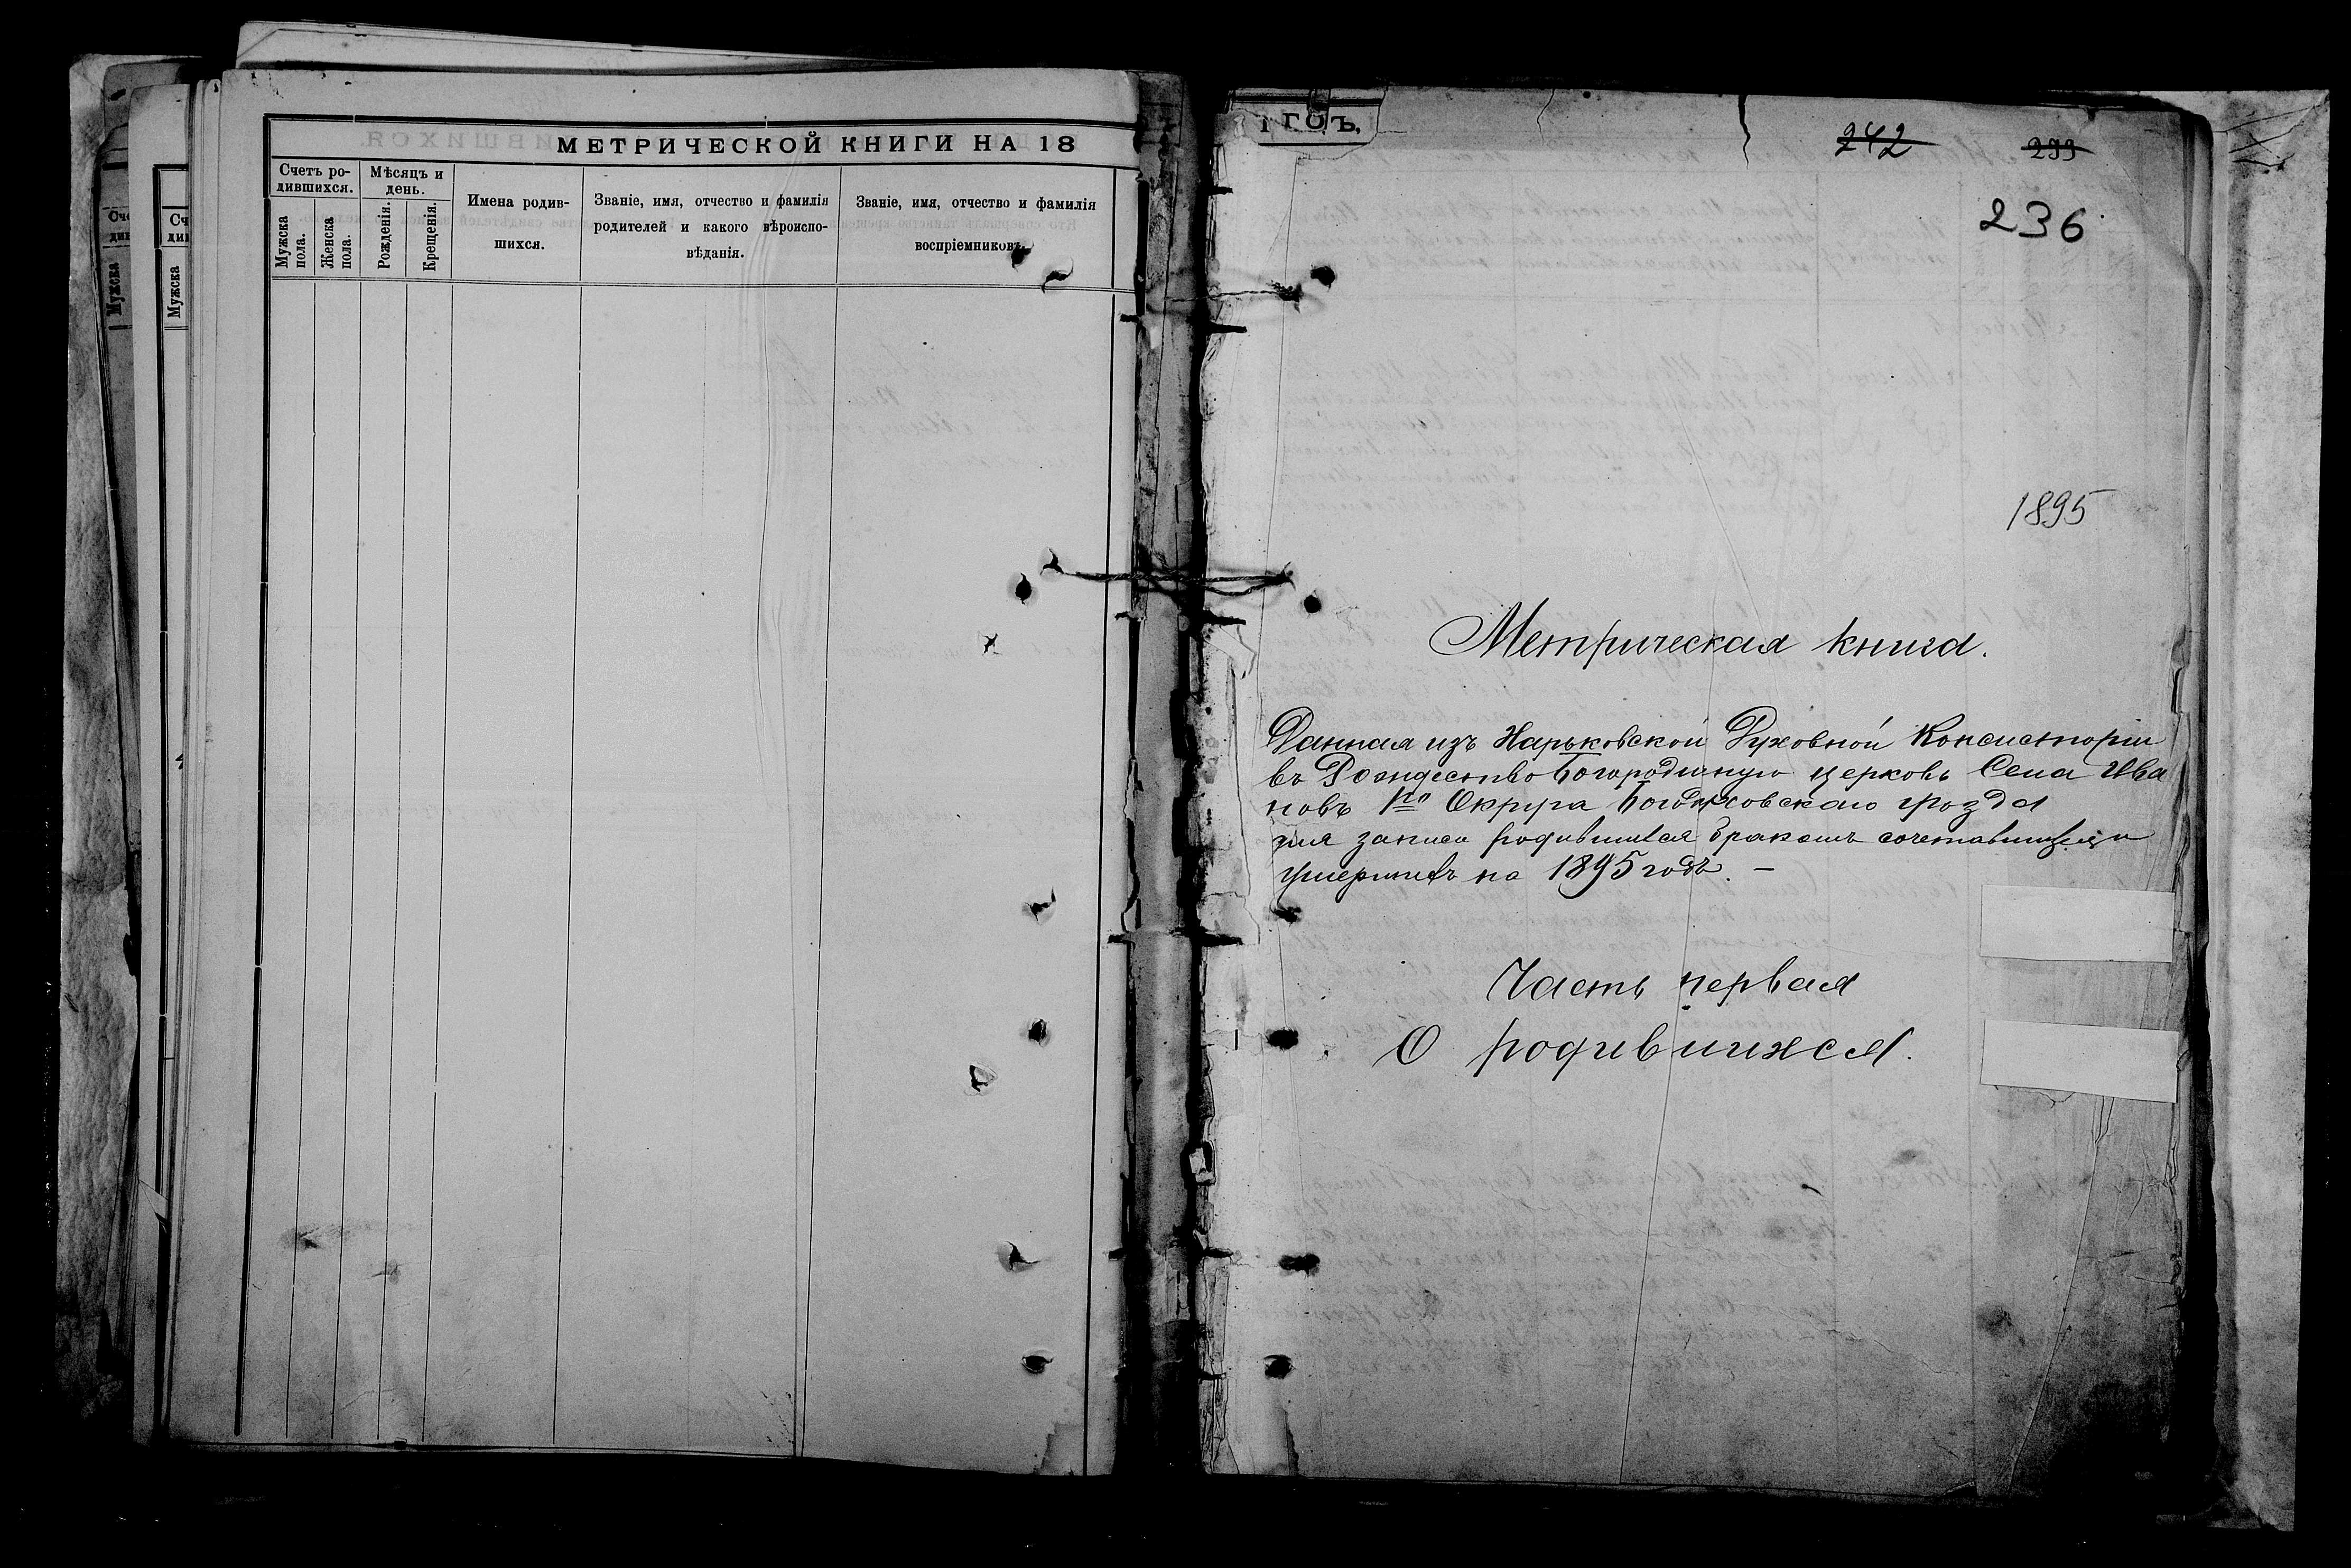 МЕТРИЧЕСКОЙ КНИГИ НА 18
Счетъ ро-
дившихся.
Мужска
пола.
Женска
пола.
Мѣсяцъ и
день.
Рожденія.
Крещенія.
Имена родив-
шихся.
Званіе, имя, отчество и фамилія
родителей и какого вѣроиспо-
вѣданія.
Званіе, имя, отчество и фамилія
воспріемниковъ.
Сче
Мужска
Сч
Мужска
ГОЪ.
242
233
236
1895
Метрическая книга.
Данная изъ Харьковской Духовной Консисторіи
въ Рождество Богородичную церковь Села Ива
новъ 1го Округа Богодуховскаго уѣзда
для записи родившихся бракомъ сочетавшихся и
умершихъ на 1895 годъ. —
Часть первая
О родившихся.